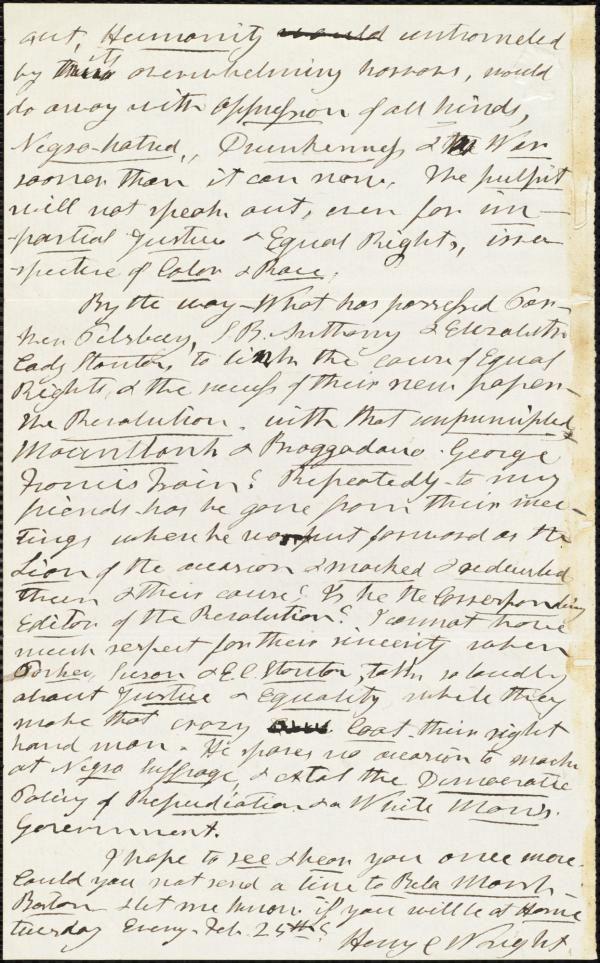 out, Humanity would untrameled
by its overwhelming horrors, would
do away with oppression of all kinds,
Negro-hatred, Drunkenness & War
sooner than it can now. The pulpit
will not speak out, even for im-
-partial Justice & Equal Rights, irre-
-spective of Color & Race.
By the way - What has possessed Par-
ker Pilsbury, S B. Anthony & Elizabeth
Cady Stanton, to link the cause of Equal
Rights, & the success of their new paper -
the Revolution, with that unprincipled
Mountbank & Braggadocio - George
Francis Train? Repeatedly - to my
friends - has he gone from their mee-
tings where he was put forward as the
Lion of the occasion & mocked & ridiculed
them & their cause? Is he the Corresponding
Editor of the Revolution? I cannot have
much respect for their sincerity when
Parker, Susan & E. C. Stanton, talk so loudly
about Justice & Equality while they
make that crazy Coat - their right
hand man. He spares no occasion to mock
at Negro Suffrage, & extol the Democratic
Policy of Repudiation & a White Man's
Government.
I hope to see & hear you once more.
Could you not send a line to Bela Marsh -
Boston & let me know if you will be at Home
tuesday Eveny. Feb. 25th?
Henry C Wright